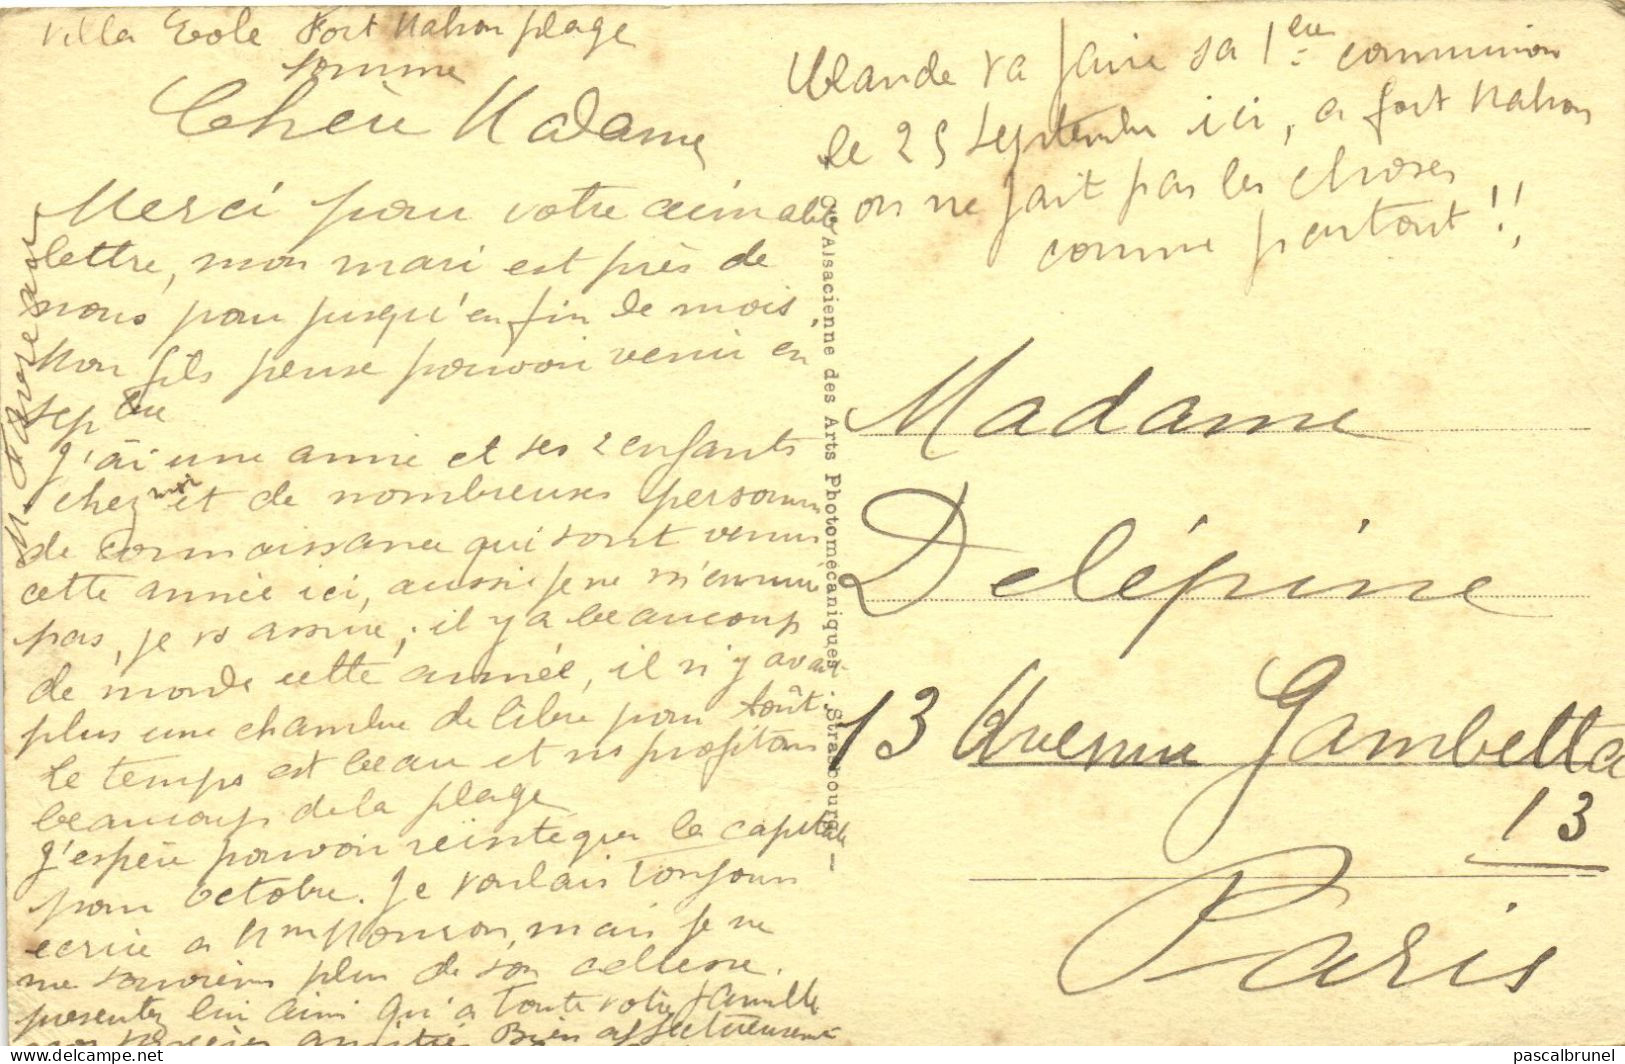 Villa Eole Fort Mahon plage
Somme
Chère Madame
Merci pour votre aimable
lettre, mon mari est près de
nous pour jusqu'en fin de mois,
Mon fils pense pouvoir venir en
sepbre
J'ai une amie et ses 2 enfants
chez moi et de nombreuses personnes
de connaissance qui sont venus
cette année ici, aussi je ne m'ennuie
pas, je vs assure; il y a beaucoup
de monde cette année, il n'y avait
plus une chambre de libre pour Août.
Le temps est beau et ns profitons
beaucoup de la plage
J'espère pouvoir réintégrer la capitale
pour octobre. Je voulais toujours
écrire a Mme, mais je ne
me souviens plus de son adresse.
presentez lui ainsi qu'a toute votre famille
amitiés Bien affectueusement
va faire sa 1ère communion
le 25 Septembre ici, a fort Mahon
on ne fait pas les choses
comme partout!!
Cie Alsacienne des Arts Photomécaniques - Strasbourg
Madame
Delépine
13 Avenue Gambetta
13
Paris
pascalbrunel
delcampe.net